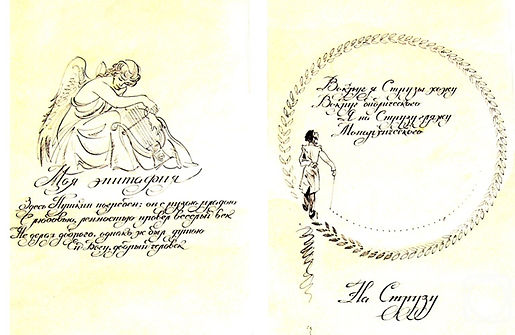 Моя эпитафия
Здесь Пушкин погребен; он с музою младою
С любовью, леностью провел веселый век
Не делал доброго, однако ж был душою
Ей Богу, добрый человек
Вокруг я Струзы хожу
Вокруг библического
Я на Струзу гляжу
Монархического
На Струзу